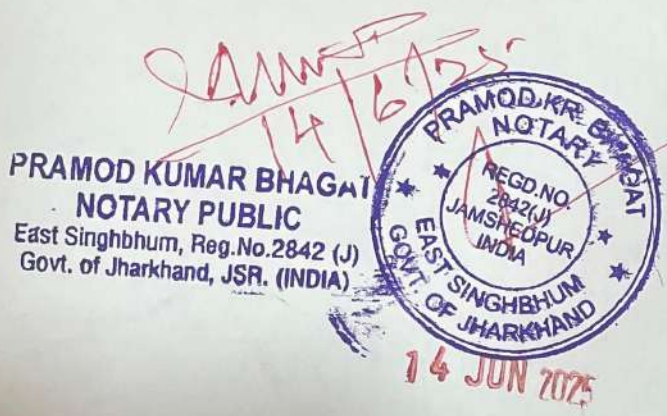 14/6/25
PRAMOD KUMAR BHAGAT
NOTARY PUBLIC
East Singhbhum, Reg.No.2842 (J)
Govt. of Jharkhand, JSR. (INDIA)
PRAMOD KR. BHAGAT
NOTARY
REGD.NO.
2842(J)
JAMSHEDPUR
INDIA
EAST SINGHBHUM
GOVT. OF JHARKHAND
14 JUN 2025